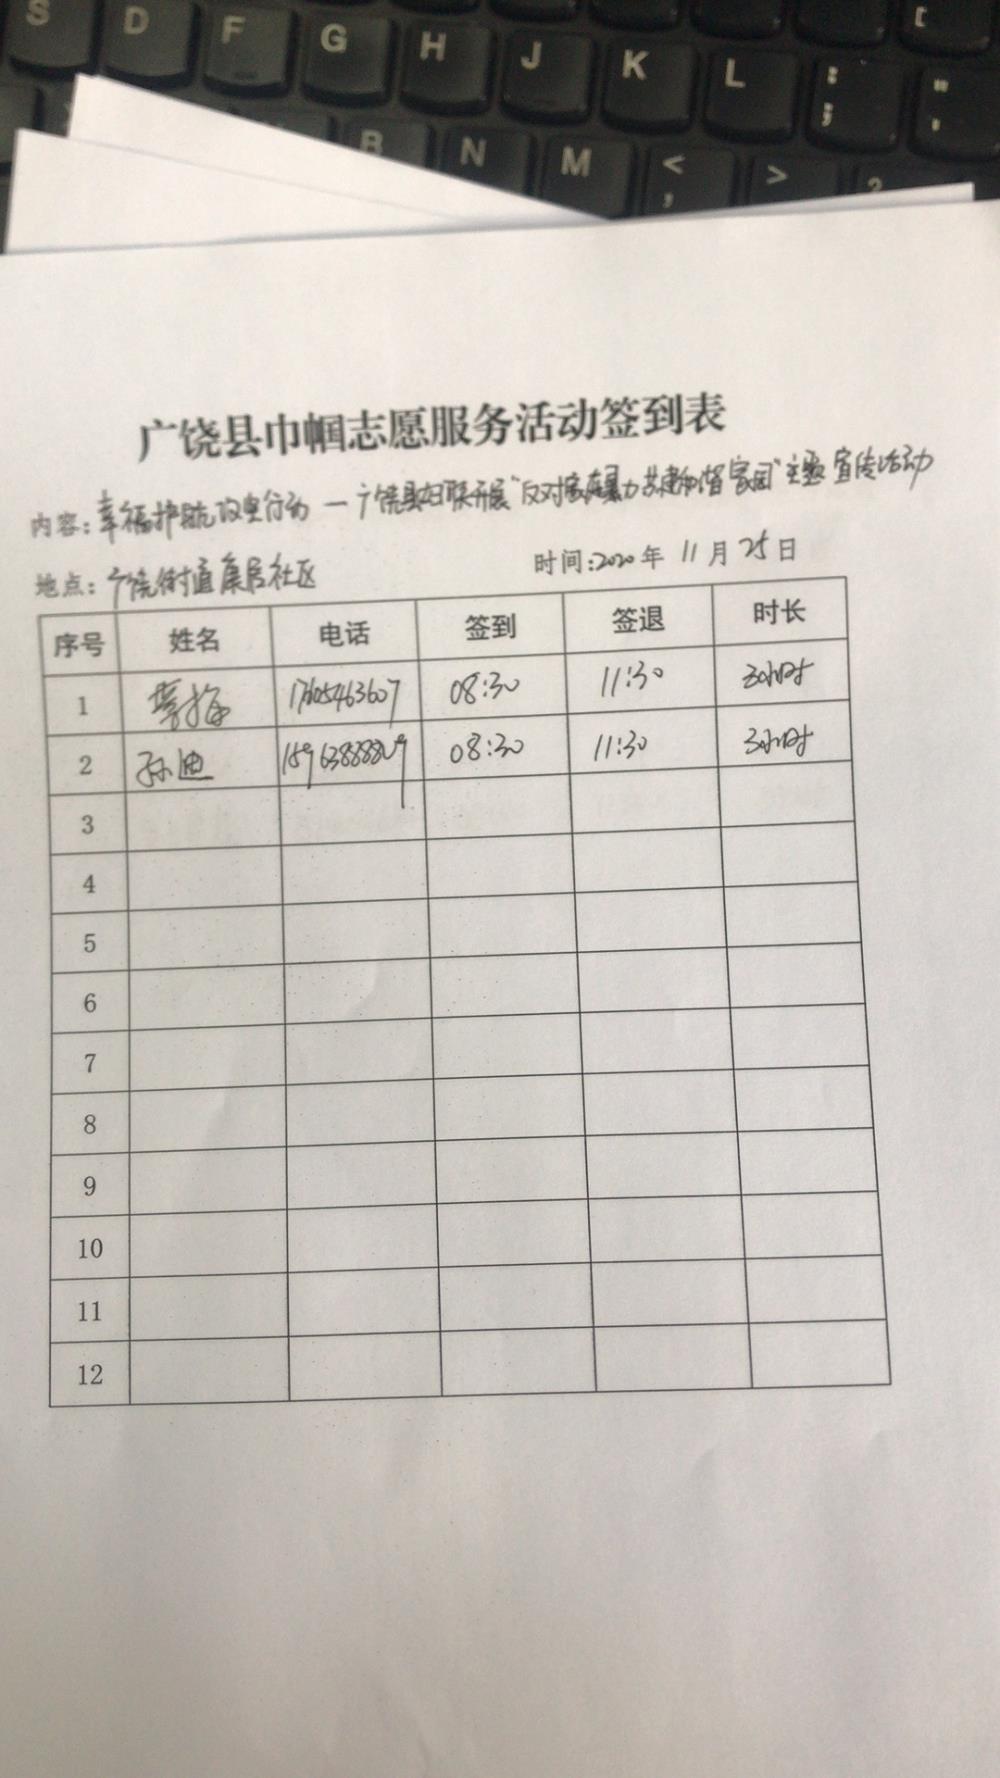 S D F G H J K L : ; [ " '
B N M < , > ?
广饶县巾帼志愿服务活动签到表
内容：幸福护航攻坚行动—广饶县妇联开展“反对家庭暴力 共建和谐家园”主题宣传活动
地点：广饶街道康居社区 时间:2020年 11月25日
序号 姓名 电话 签到 签退 时长
1 17605463607 08:30 11:30 3小时
2 孙迪 08:30 11:30 3小时
3
4
5
6
7
8
9
10
11
12